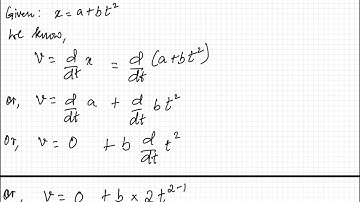 Given: x = a + bt²
We know,
v = d/dt x = d/dt (a + bt²)
or, v = d/dt a + d/dt bt²
or, v = 0 + b d/dt t²
or, v = 0 + b × 2t²⁻¹